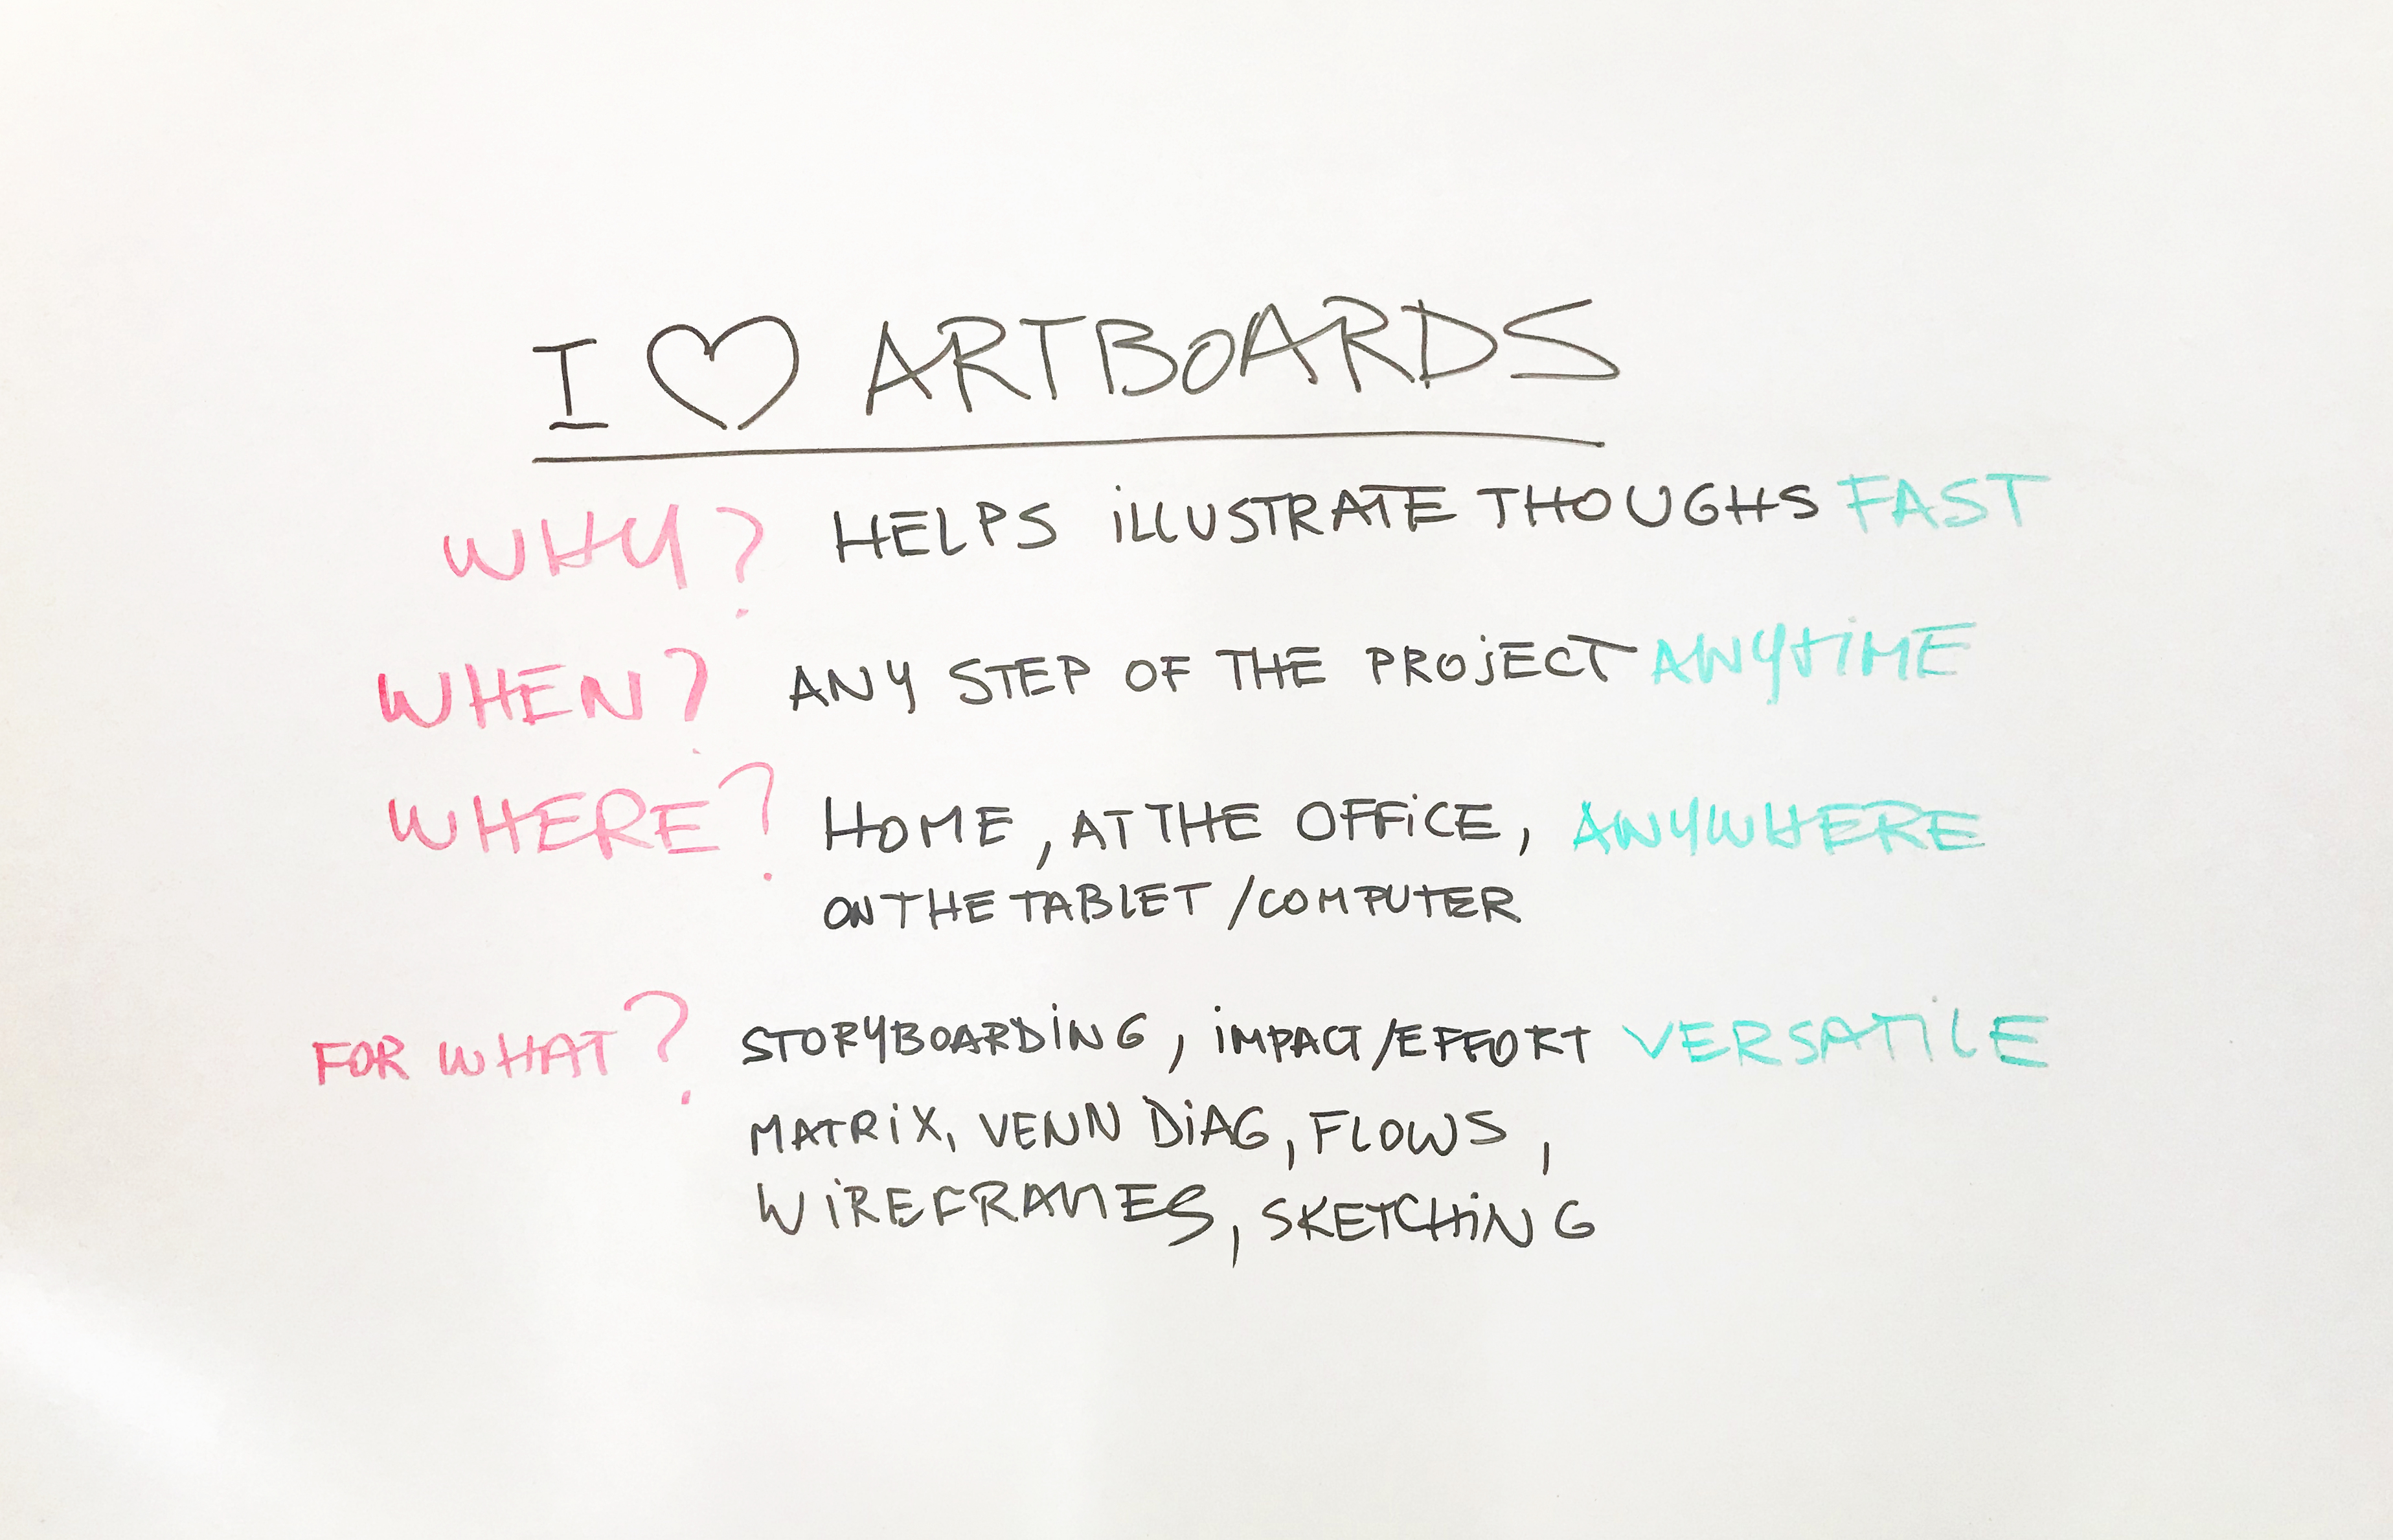 I ♡ ARTBOARDS
WHY? HELPS ILLUSTRATE THOUGHS FAST
WHEN? ANY STEP OF THE PROJECT ANYTIME
WHERE? HOME, AT THE OFFICE, ANYWHERE
ON THE TABLET/COMPUTER
FOR WHAT? STORYBOARDING, IMPACT/EFFORT VERSATILE
MATRIX, VENN DIAG, FLOWS,
WIREFRAMES, SKETCHING